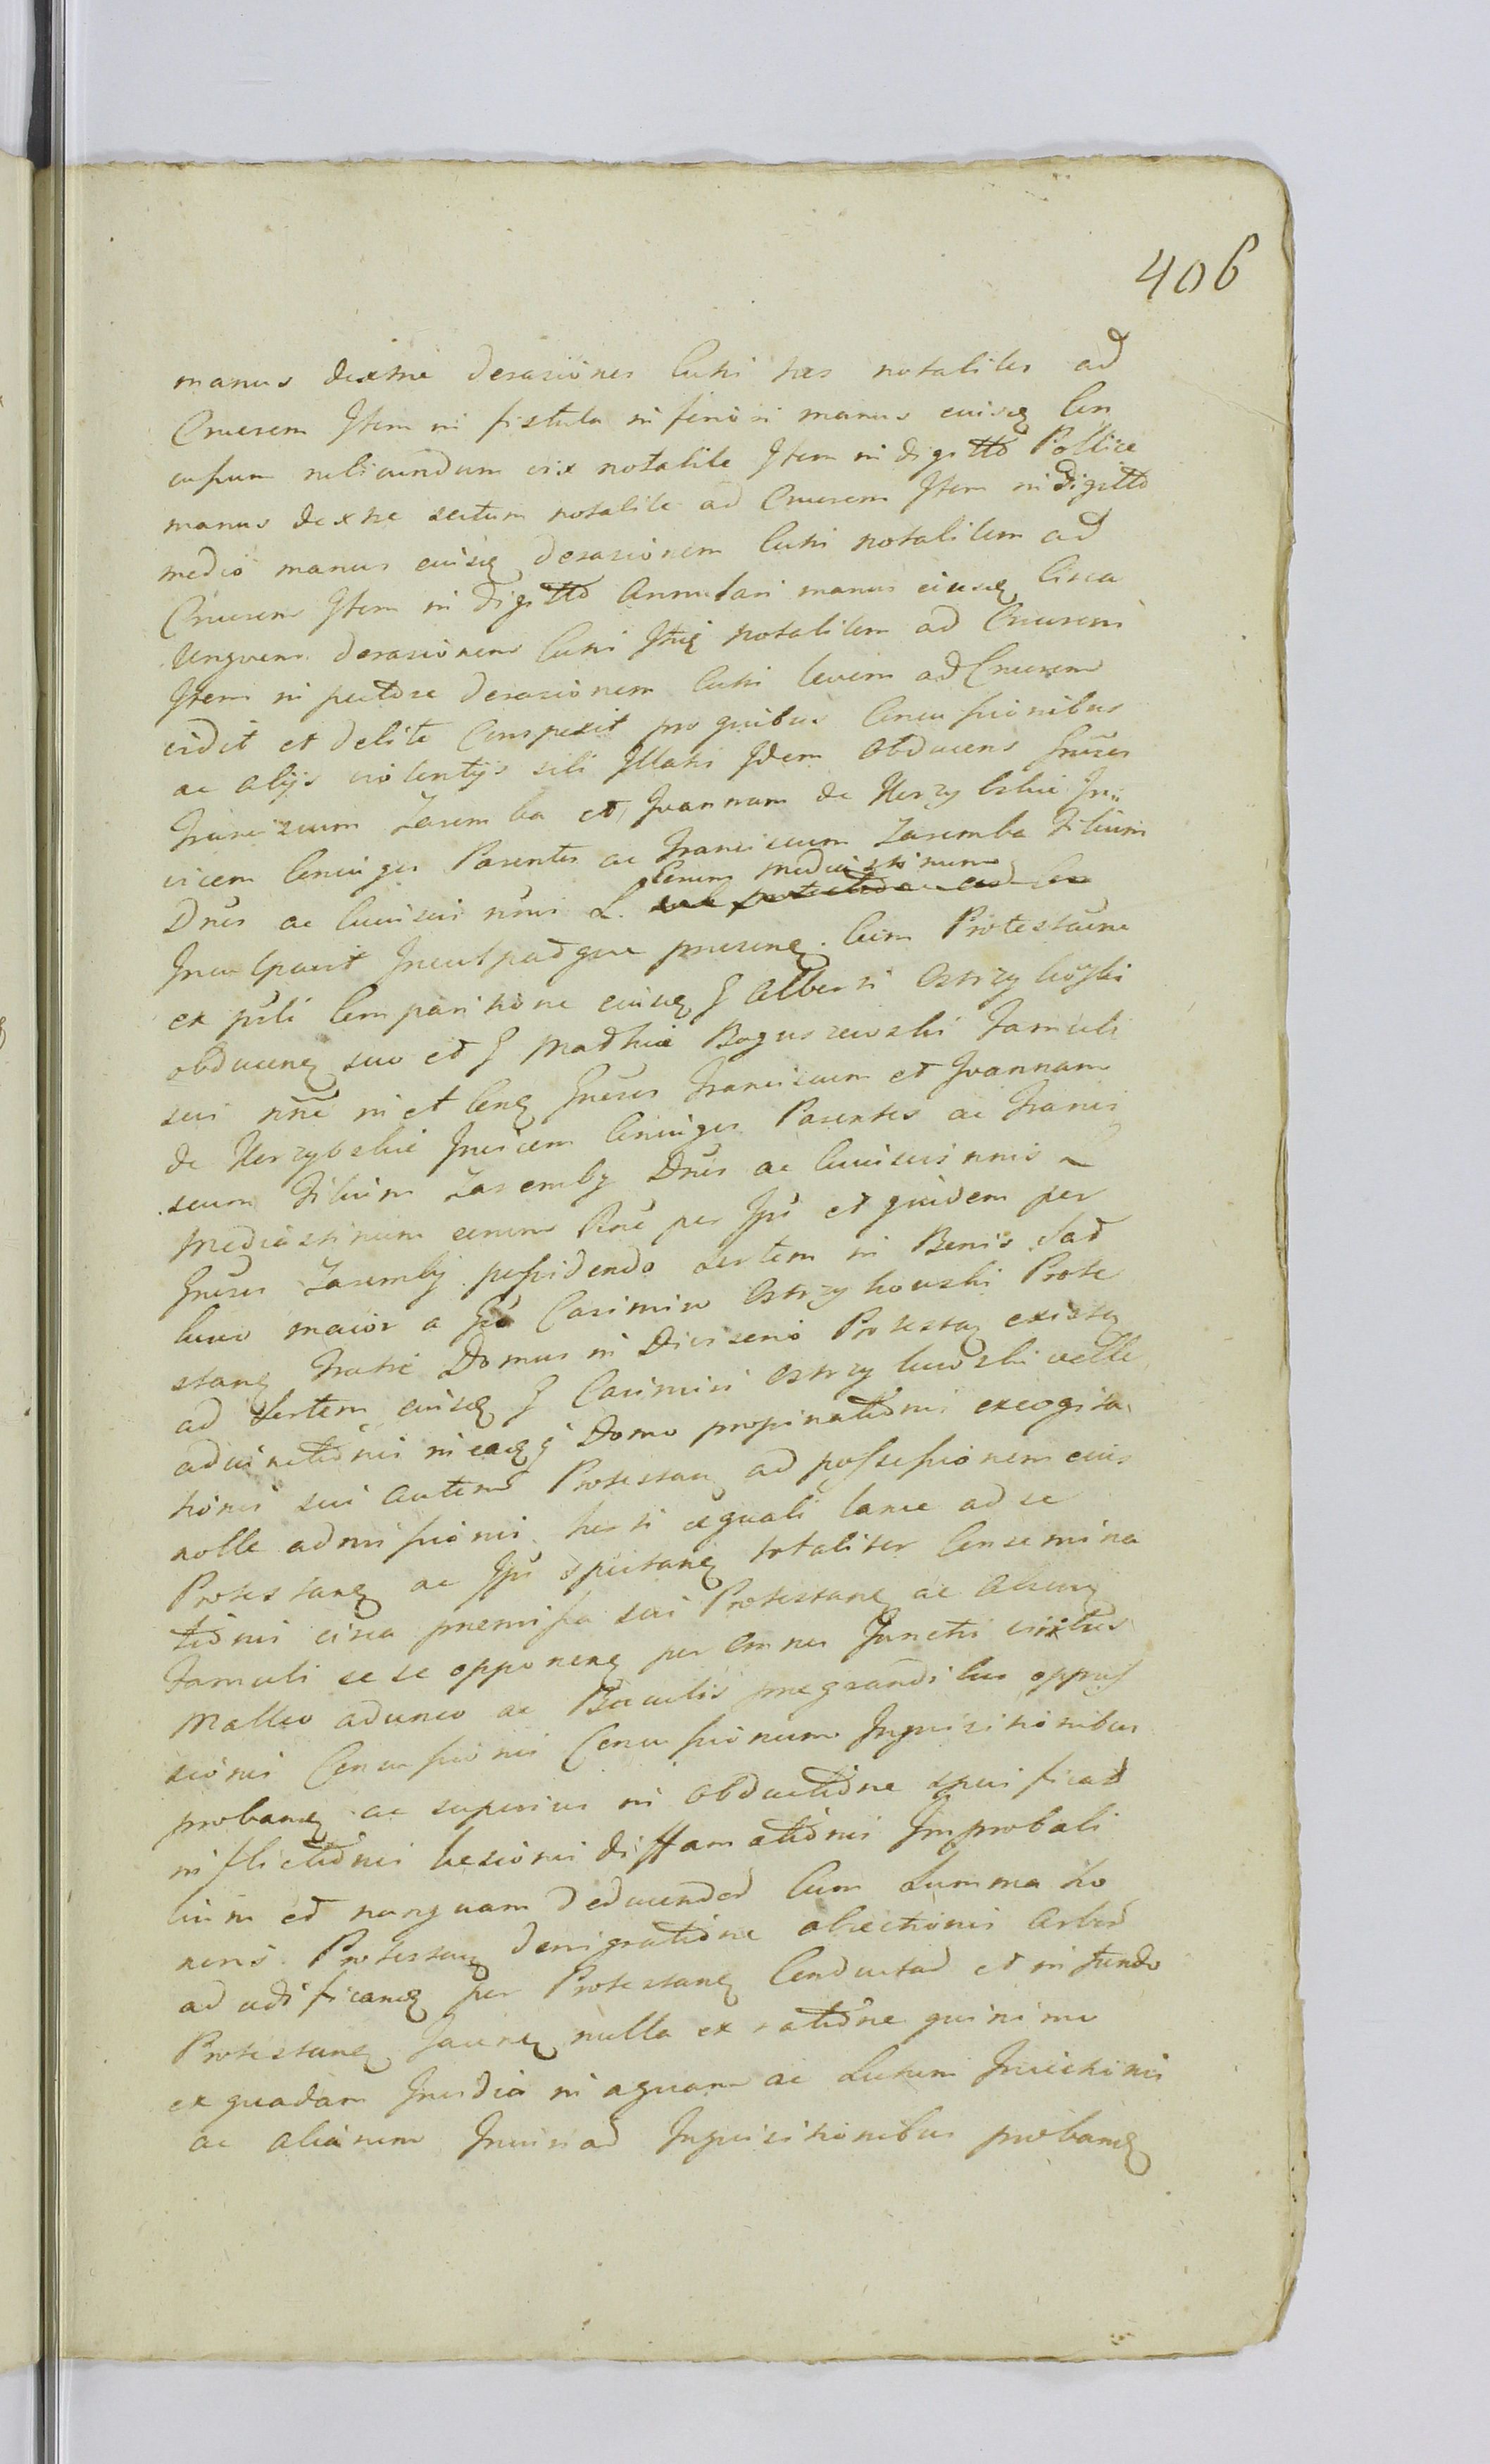 406
manus dextrae derasiones Cutis tres notabiles ad
Cruorem Item in fistula inferiori manus eiusq Con
cusum rubicundum vix notabile Item in digitto Pollice
manus dextre sectum notabile ad Cruorem Item in digitto
medio manus eiusq derasionem Cutis notabilem ad
Cruorem Item in digitto Annulari manus eiusq Circa
Unguem derasionem Cutis Itiq notabilem ad Cruorem
Item in pectore derasionem Cutis levem ad Cruorem
vidit et debite Conspexit pro quibus Concussionibus
ac alijs violentijs sibi Illatis Idem Obducens Gnsos
Franciscum Zaremba et Joannam de Kerzybskie In
vicem Coniuges Parentes ac Franciscum Zaremba Filium
Dnos ac Coniuges nnis L. Eorum mediastinum
Inculpavit Inculpadque presenq. Cum Protestaone
ex psti Comparitione eiusq G Alberti Ostrzykoski
obducenq suo et G Mathia Boguszewski Famuli
sui nne in et Conq Gnsos Franciscum et Joannam
de Kerzybskie Invicem Coniuges Parentes ac Franci
scum Filium Zaremby Dnos ac Coniuges nnis L
mediastinum eorum Rone per Ips et quidem per
Gnsos Zaremby possidendo Sortem in Bonis Sad
kowo maior a Go Casimiro Ostrzykowski Prote
stanq Fratre Domus in Divisenio Protestaq existq
ad Sortem eiusq G Casimiri Ostrzykowski velle
advinctionis in eaeq G Domo propinationis excogita
tionis sui autem Protestanq ad possessionem eius
nolle admissionis. horti aequali lance ad se
Protestanq ac Ips spectanq totaliter Conseminа
tionis circa premissa sui Protestanq ac alterq
Famuli se se opponenq per omnes Junctis viribus
Malleo adunco ac Baculis pregrandibus oppres
sionis Concussionis Concussionum Inquisitionibus
probanq ac superius in Obductione specificat
inflictionis laesionis diffamationis Improbabi
lium et nunquam deducended Cum Summa ho
noris Protestanq denigratione abiectionis Arbod
ad aedificanq per Protestanq Conductad et in fundo
Protestanq Jacenq nulla ex ratione quinimo
ex quadam Invidia in aquam ac Lutum Iniectionis
ac aliarum Iniuriad Inquisitionibus probanq